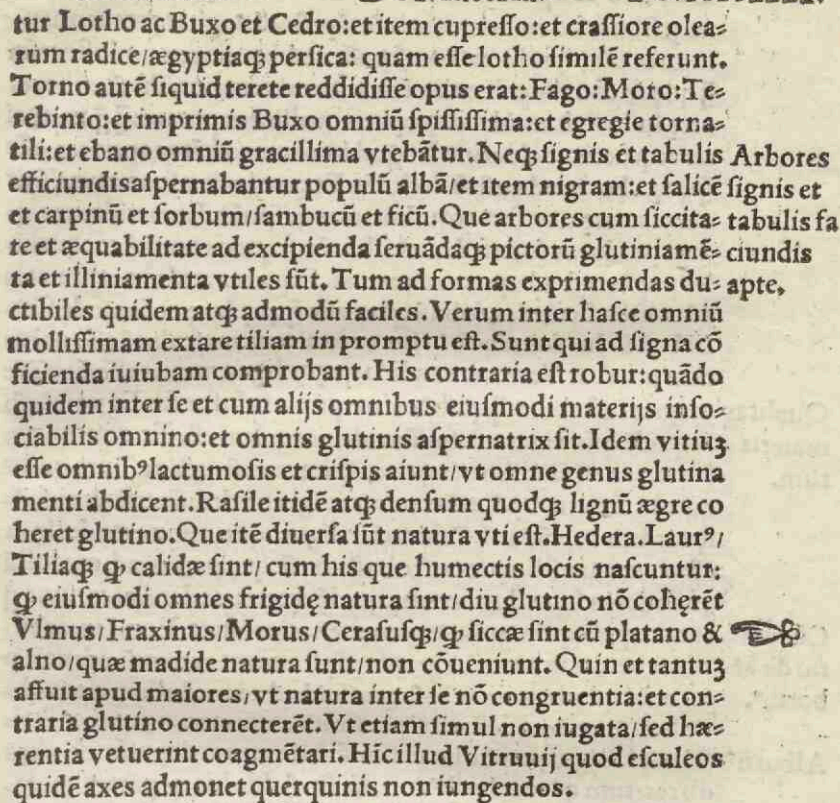 tur Lotho ac Buxo et Cedro:et item cupreſſo:et craſſiore olea⸗
rum radice/ægyptiaqꝫ perſica: quam eſſe lotho ſimilē referunt.
Torno autē ſiquid terete reddidiſſe opus erat:Fago:Moro:Te⸗
rebinto:et imprimis Buxo omniū ſpiſſiſſima:et egregie torna⸗
tili:et ebano omniū gracillima vtebātur. Neqꝫ ſignis et tabulis
efficiundisaſpernabantur populū albā/et item nigram:et ſalicē
et carpinū et ſorbum/ſambucū et ficū. Que arbores cum ſiccita⸗
te et æquabilitate ad excipienda ſeruādaqꝫ pictorū glutiniamē⸗
ta et illiniamenta vtiles ſūt. Tum ad formas exprimendas du⸗
ctibiles quidem atqꝫ admodū faciles. Verum inter haſce omniū
molliſſimam extare tiliam in promptu eſt. Sunt qui ad ſigna cō
ficienda iuiubam comprobant. His contraria eſt robur:quādo
quidem inter ſe et cum alijs omnibus eiuſmodi materijs inſo⸗
ciabilis omnino:et omnis glutinis aſpernatrix ſit. Idem vitiuꝫ
eſſe omnibꝰ lactumoſis et criſpis aiunt/vt omne genus glutina
menti abdicent. Raſile itidē atqꝫ denſum quodqꝫ lignū ægre co
heret glutino. Que itē diuerſa ſūt natura vti eſt. Hedera. Laurꝰ/
Tiliaqꝫ ꝙ calidæ ſint/ cum his que humectis locis naſcuntur:
ꝙ eiuſmodi omnes frigidę natura ſint/diu glutino nō cohęrēt
Vlmus/Fraxinus/Morus/Ceraſuſqꝫ/ꝙ ſiccæ ſint cū platano &
alno/quæ madide natura ſunt/non cōueniunt. Quin et tantuꝫ
affuit apud maiores/vt natura inter ſe nō congruentia:et con⸗
traria glutino connecterēt. Vt etiam ſimul non iugata/ſed hæ⸗
rentia vetuerint coagmētari. Hic illud Vitruuij quod eſculeos
quidē axes admonet querquinis non iungendos.
Arbores
ſignis et
tabulis fa
ciundis
apte.